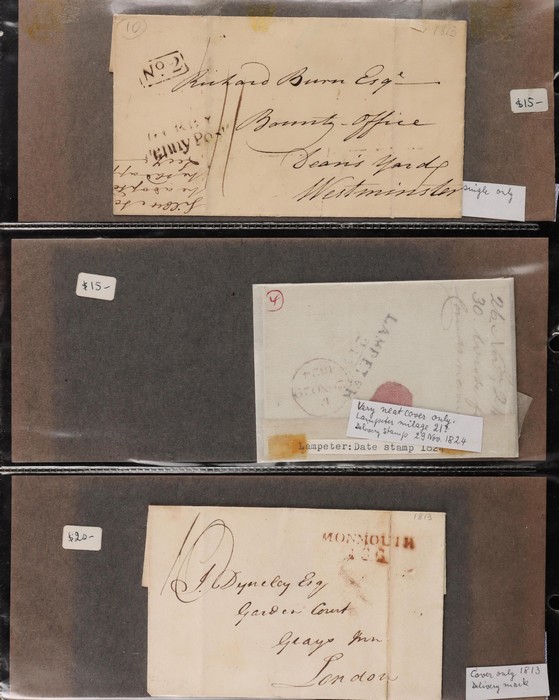 10
1813
No. 2
Penny Post
Richard Burn Esqr
Bounty Office
Dean's Yard
Westminster
$15-
single only
$15-
4
LAMPETER
Very neat cover only.
Lampeter milage 217
Delivery Stamp 29 Nov. 1824
Lampeter: Date stamp 182
$20-
1813
MONMOUTH
J. Dyneley Esq
Garden Court
Grays Inn
London
Cover only 1813
Delivery mark